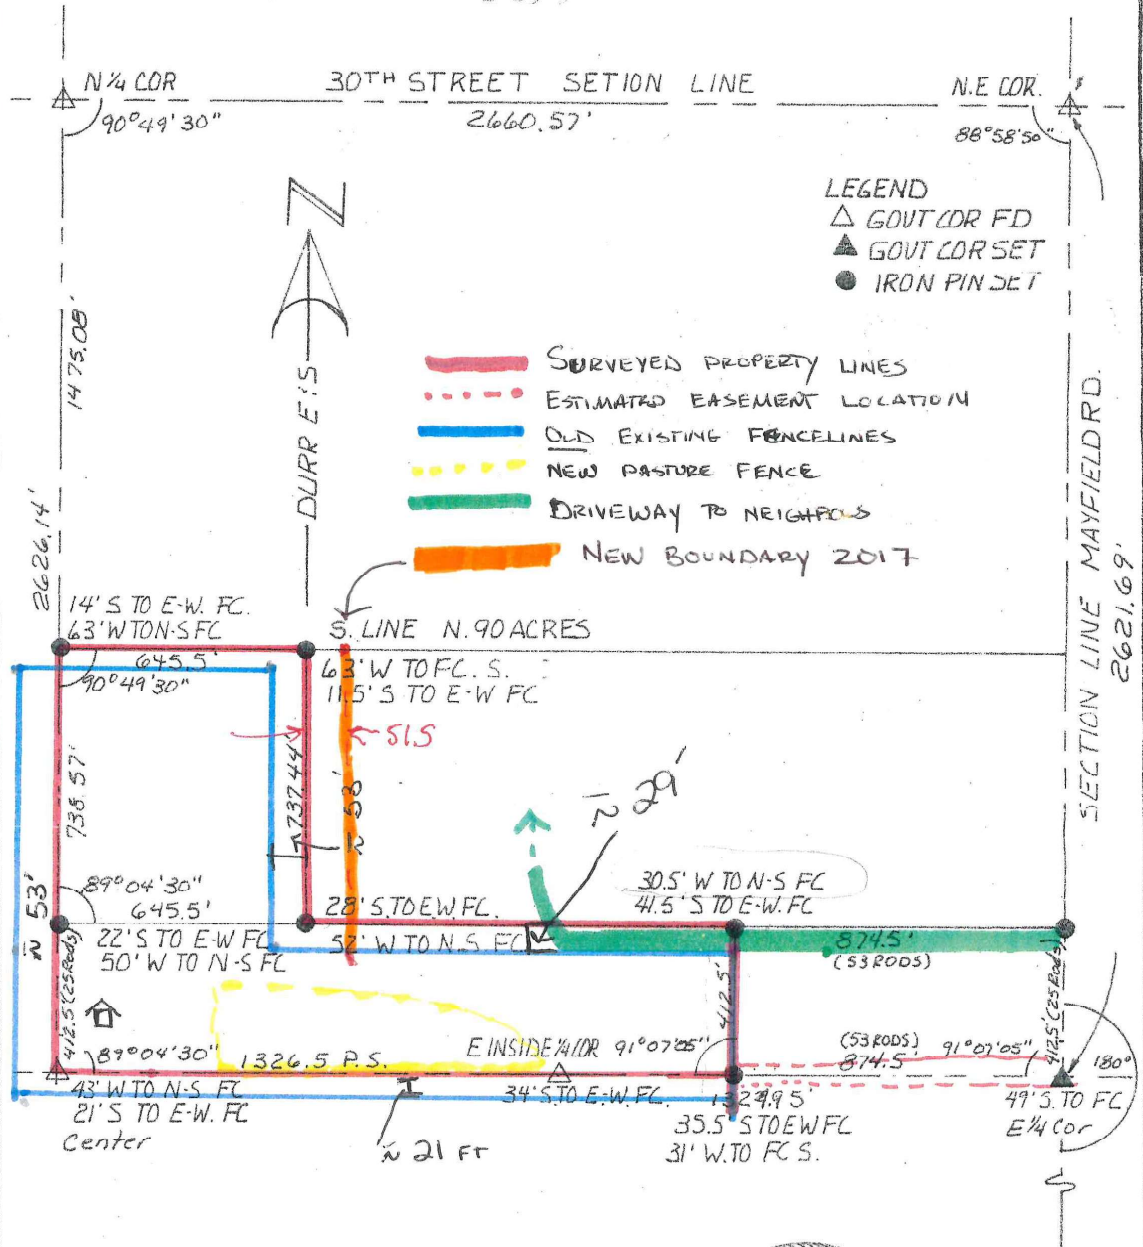 N ¼ COR
30TH STREET SETION LINE
N.E COR.
90°49'30"
2660.57'
88°58'50"
N
LEGEND
GOUT COR FD
GOUT COR SET
IRON PIN SET
1475.08'
2626.14'
DURR EIS
SURVEYED PROPERTY LINES
ESTIMATED EASEMENT LOCATION
OLD EXISTING FENCELINES
NEW PASTURE FENCE
DRIVEWAY TO NEIGHBOS
NEW BOUNDARY 2017
SECTION LINE MAYFIELD RD.
2621.69'
14' S TO E-W. FC.
63' W TO N-S FC
S. LINE N. 90 ACRES
645.5'
90°49'30"
63' W TO FC. S.
11.5' S TO E-W FC
51.5
738.57'
737.44'
~ 53'
~ 29'
~ 53'
89°04'30"
645.5'
28' S. TO E.W. FC.
30.5' W TO N-S FC
41.5' S TO E-W. FC
22' S TO E-W FC
50' W TO N-S FC
52' W TO N.S FC
874.5'
(53 RODS)
412.5' (25 Rods)
412.5'
412.5' (25 Rods)
89°04'30"
1326.5 P.S.
E INSIDE ¼ COR
91°07'05"
(53 RODS)
874.5'
91°07'05"
180°
43' W TO N-S FC
21' S TO E-W. FC
Center
34' S. TO E-W. FC.
1329.95'
35.5' S TO EW FC
31' W. TO FC S.
49' S. TO FC
E ¼ Cor
~ 21 FT